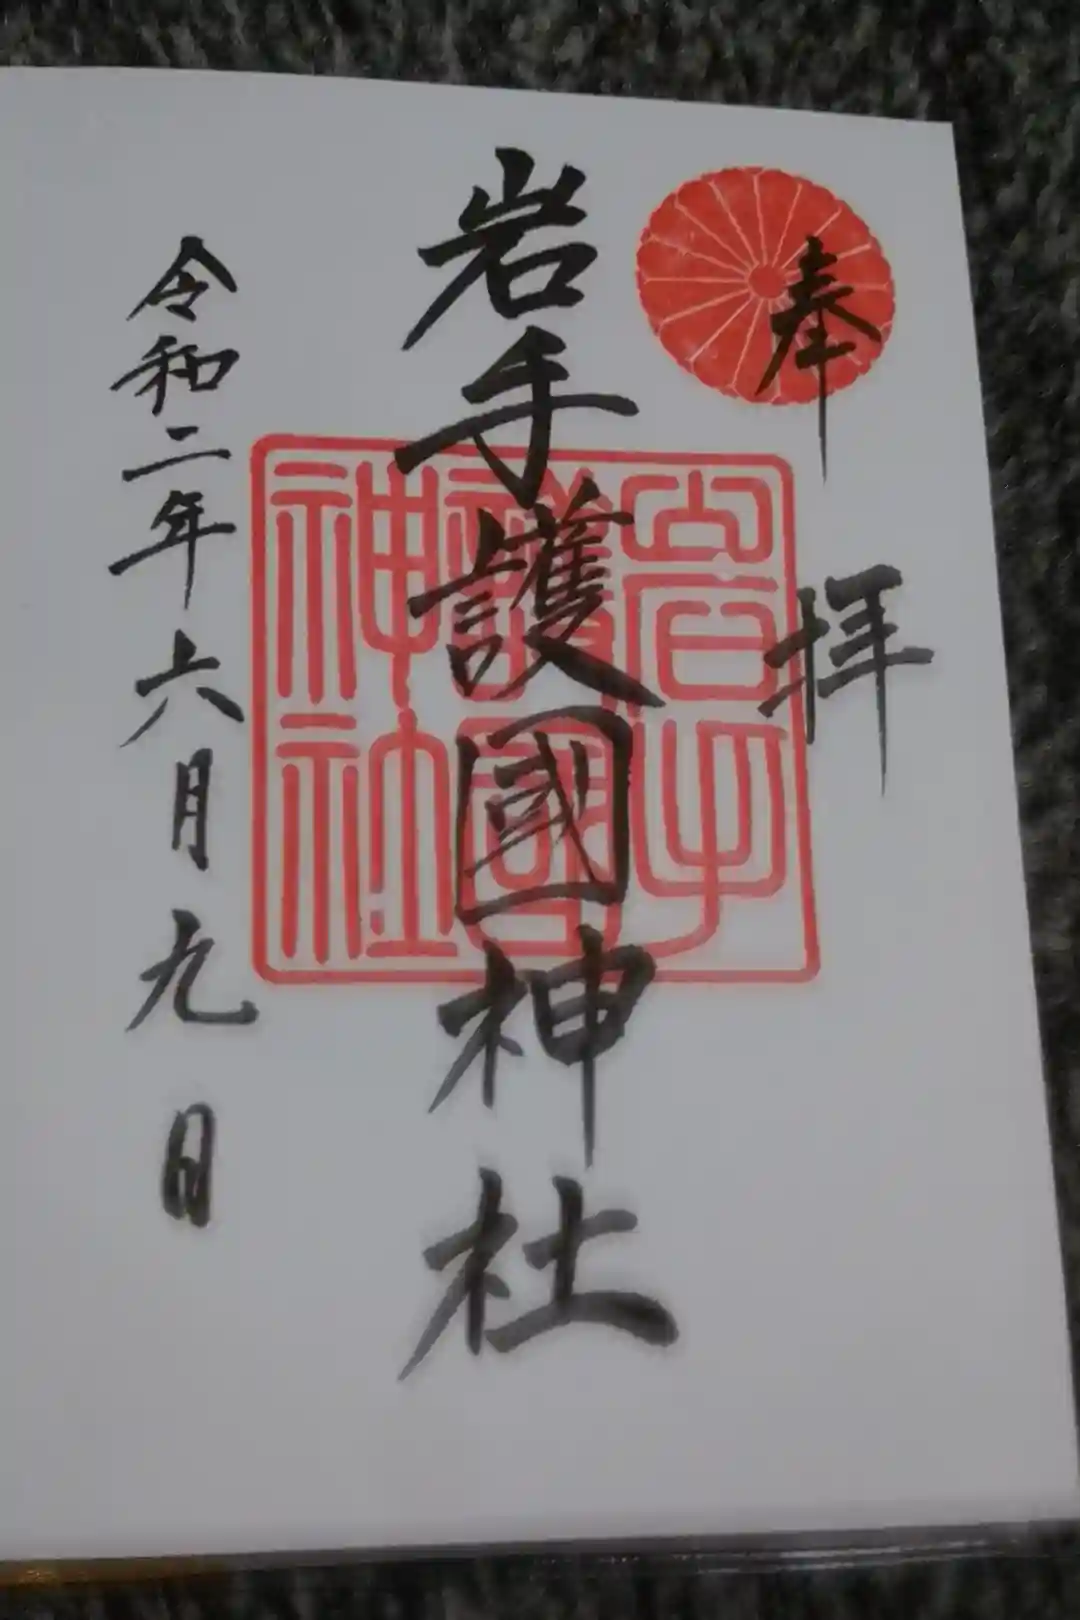 奉拝
岩手護國神社
岩手
護國
神社
令和二年六月九日